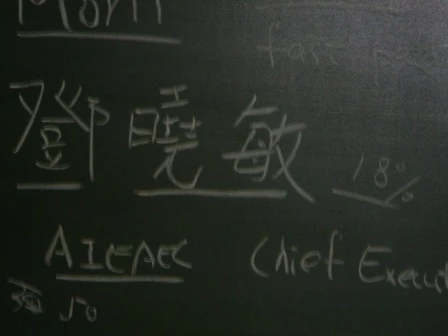 fast
鄧曉敏 18%
AIESEC Chief Execut
50